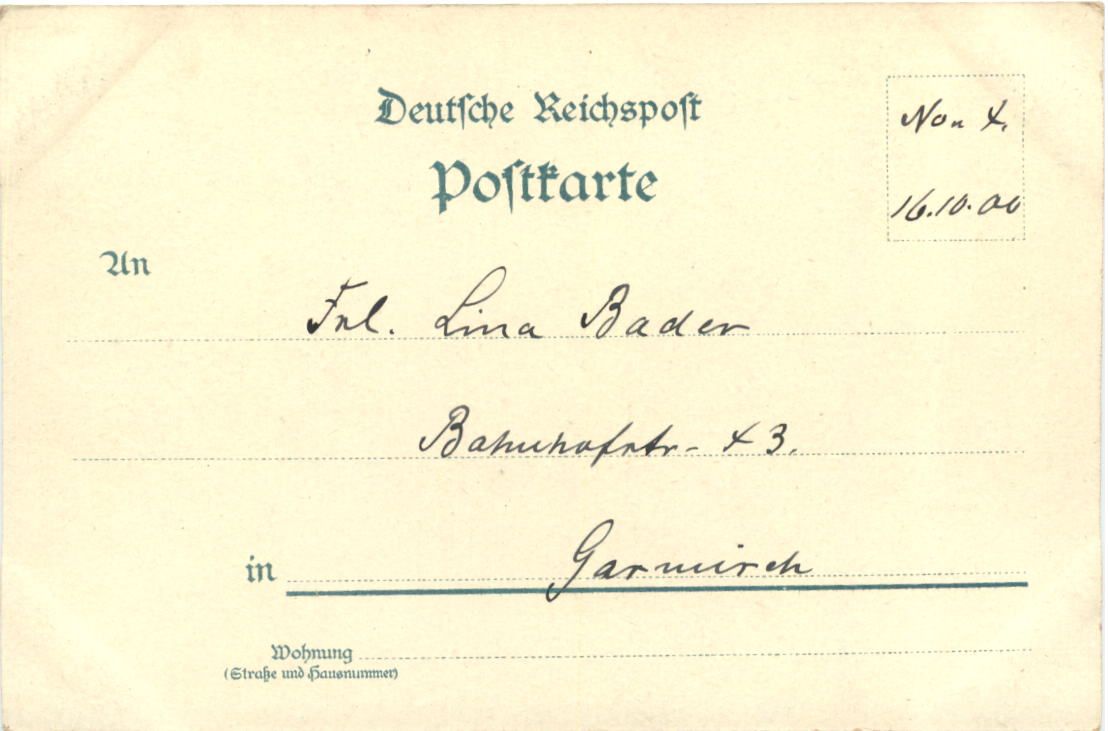 Deutsche Reichspost
Postkarte
Non 4.
16.10.00
An
Frl. Lina Bader
Bahnhofstr- 43.
in Garmisch
Wohnung
(Straße und Hausnummer)